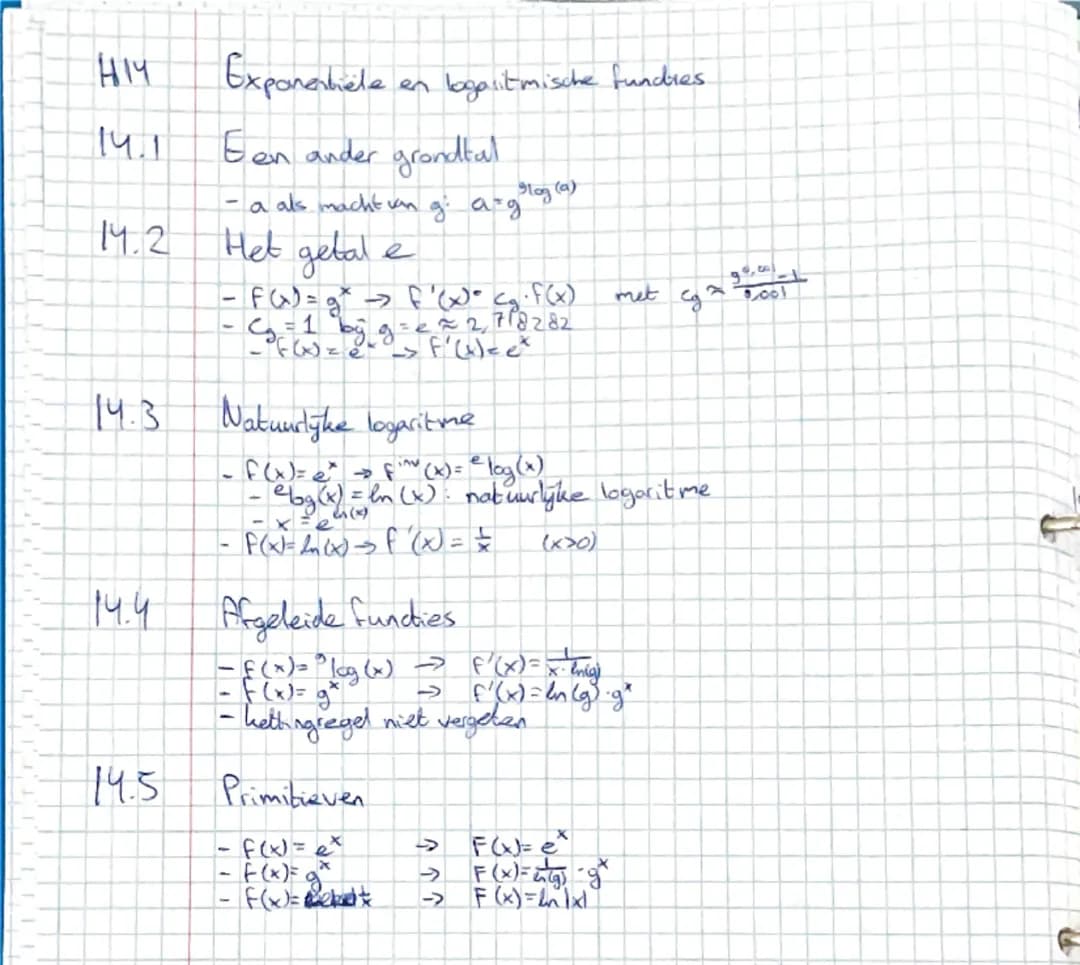 H14 Exponentiële en logaritmische functies
14.1 Een ander grondtal
- a als macht van g: a = g^(ᵍlog(a))
14.2 Het getal e
- f(x) = gˣ → f'(x) = c_g · f(x) met c_g ≈ (g^0,001 - 1)/0,001
- c_g = 1 bij g = e ≈ 2,718282
- f(x) = eˣ → f'(x) = eˣ
14.3 Natuurlijke logaritme
- f(x) = eˣ → f^inv(x) = ᵉlog(x)
- ᵉlog(x) = ln(x): natuurlijke logaritme
- x = e^(ln(x))
- f(x) = ln(x) → f'(x) = 1/x (x>0)
14.4 Afgeleide functies
- f(x) = ᵍlog(x) → f'(x) = 1/(x · ln(g))
- f(x) = gˣ → f'(x) = ln(g) · gˣ
- kettingregel niet vergeten
14.5 Primitieven
- f(x) = eˣ → F(x) = eˣ
- f(x) = gˣ → F(x) = 1/ln(g) · gˣ
- f(x) = 1/x → F(x) = ln|x|